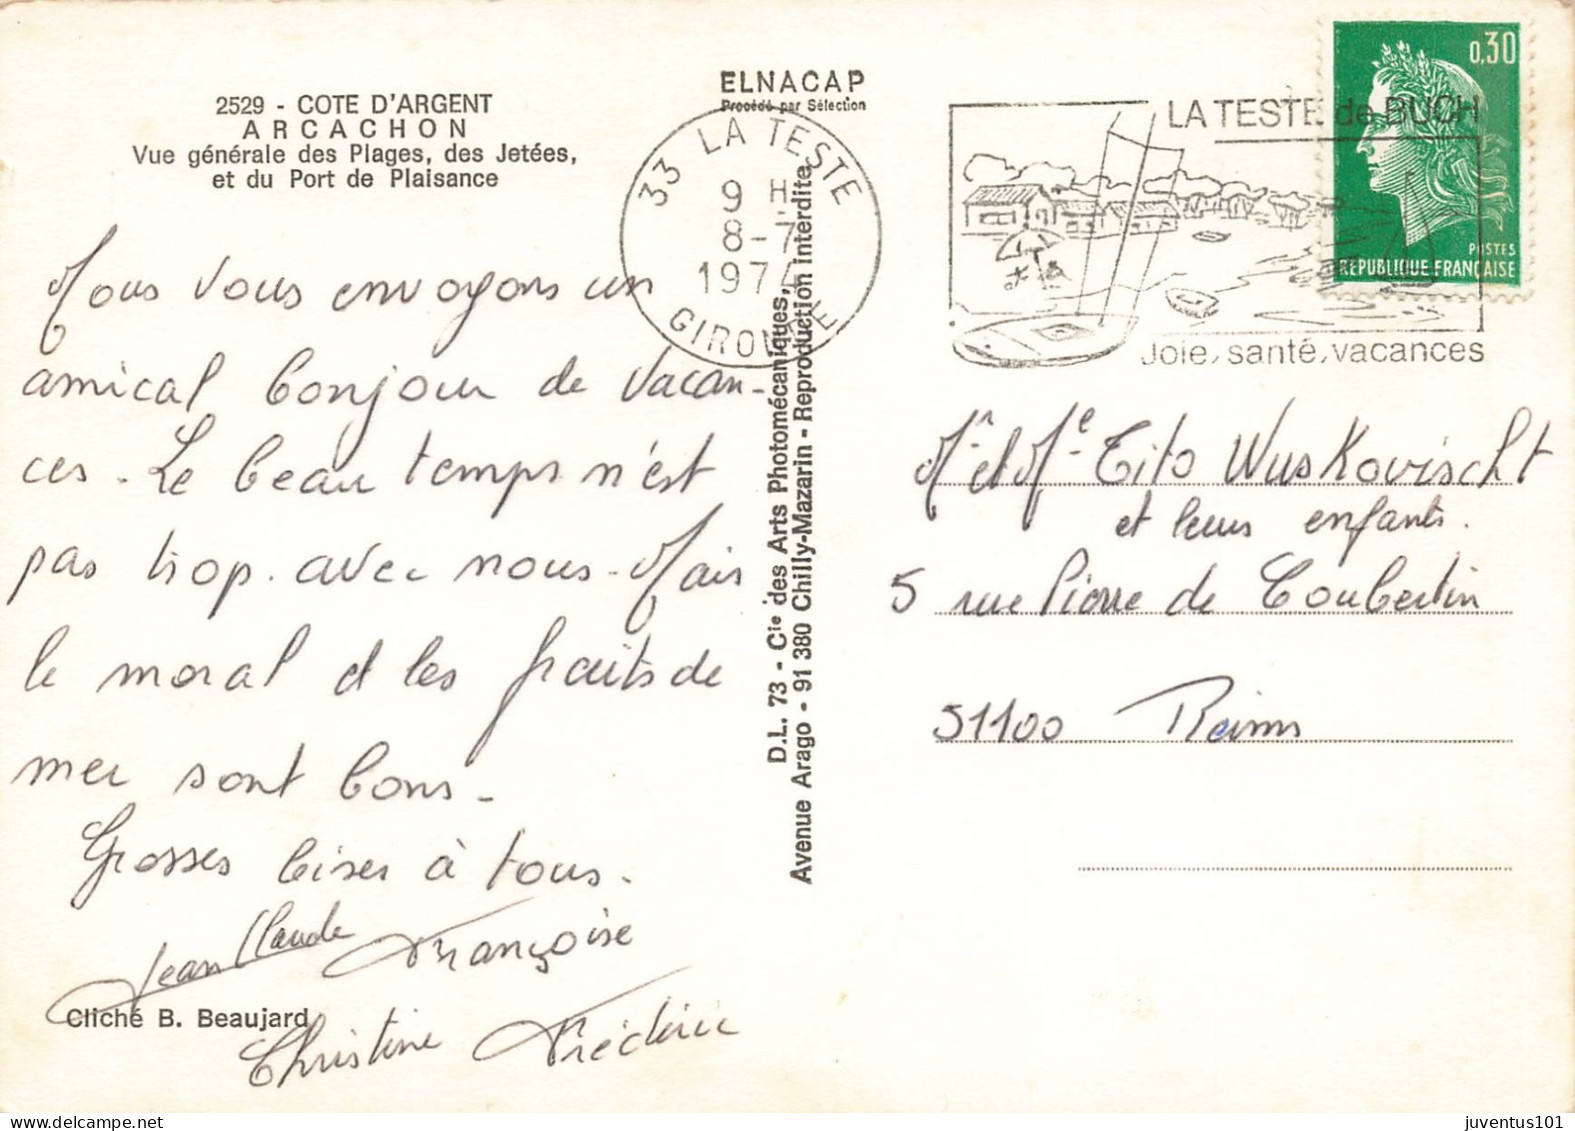 2529 - COTE D'ARGENT
ARCACHON
Vue générale des Plages, des Jetées,
et du Port de Plaisance
Nous vous envoyons un
amical bonjour de vacan-
ces. Le beau temps n'est
pas trop avec nous. Mais
le moral et les fruits de
mer sont bons.
Grosses bises à tous.
Jean Claude Françoise
Cliché B. Beaujard
Christine Frédéric
ELNACAP
Procédé par Sélection
D.L. 73 - Cie des Arts Photomécaniques,
Avenue Arago - 91 380 Chilly-Mazarin - Reproduction interdite.
33 LA TESTE
9 H
8-7
1974
GIRONDE
LA TESTE de BUCH
Joie, santé, vacances
0,30
POSTES
REPUBLIQUE FRANÇAISE
Mr et Me Tito Wuskovischt
et leurs enfants.
5 rue Pierre de Coubertin
51100 Reims
juventus101